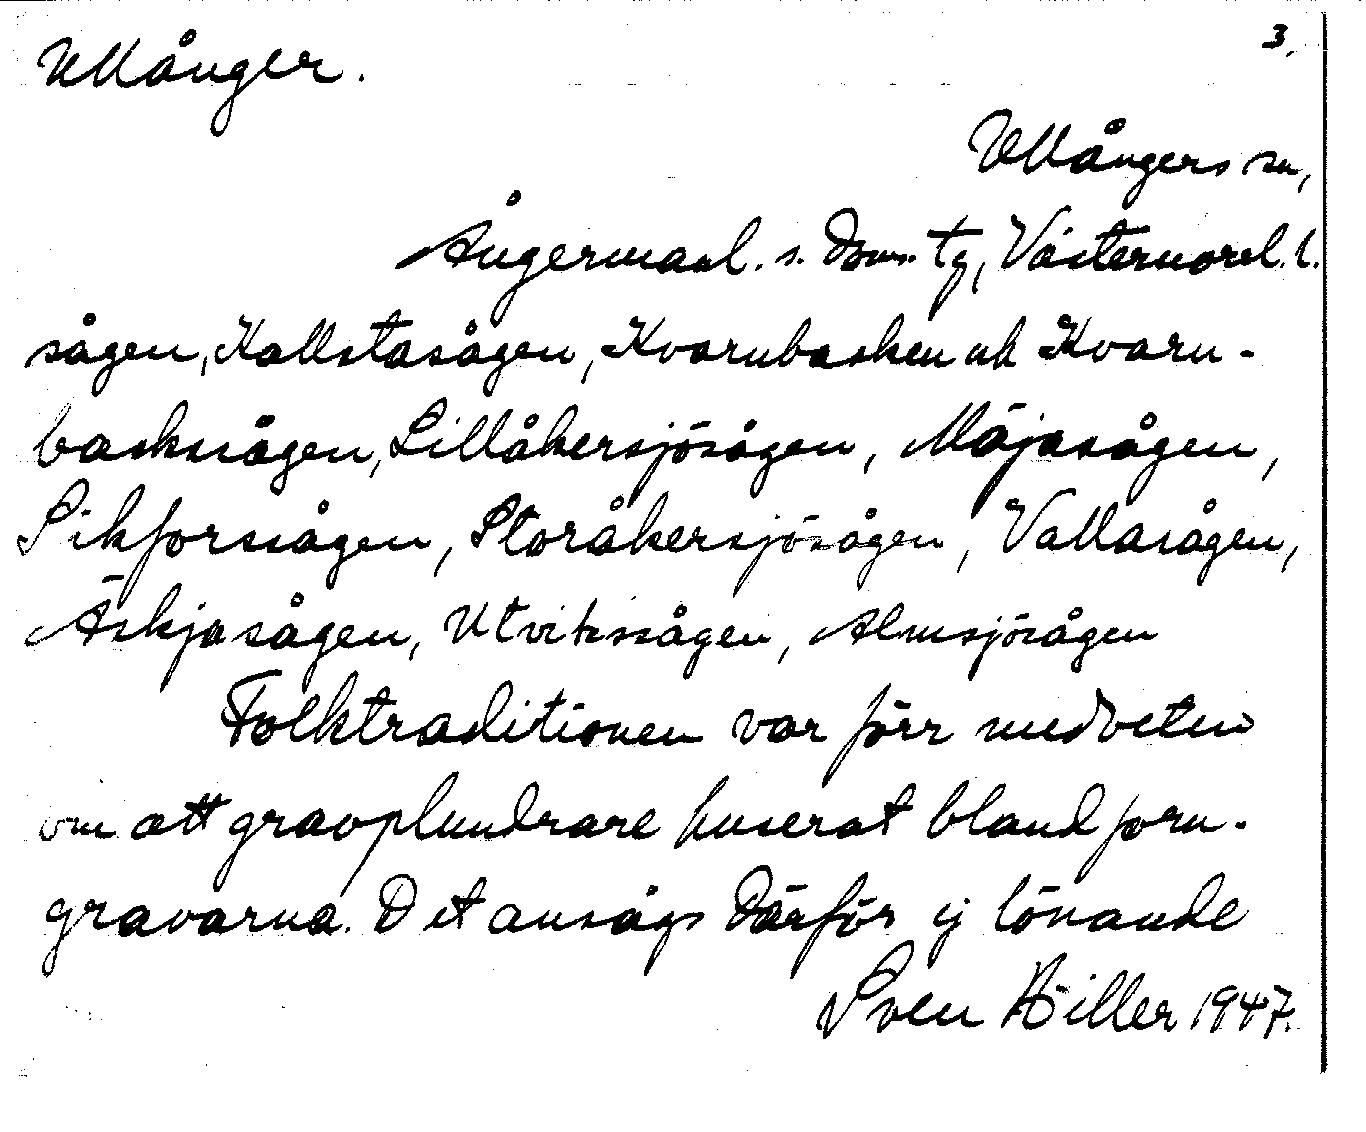 Ullånger. 3.
Ullångers sn,
Ångermanl. s. Dms. tg, Västernorrl. l.
sågen, Kallstasågen, Kvarnbacken och Kvarn-
backsågen, Lillåkersjösågen, Mäjasågen,
Sikforssågen, Storåkersjösågen, Vallasågen,
Äskjasågen, Utvikssågen, Almsjösågen
Folktraditionen var förr medveten
om att gravplundrare huserat bland forn-
gravarna. Det ansågs därför ej lönande
Sven Hiller 1947.